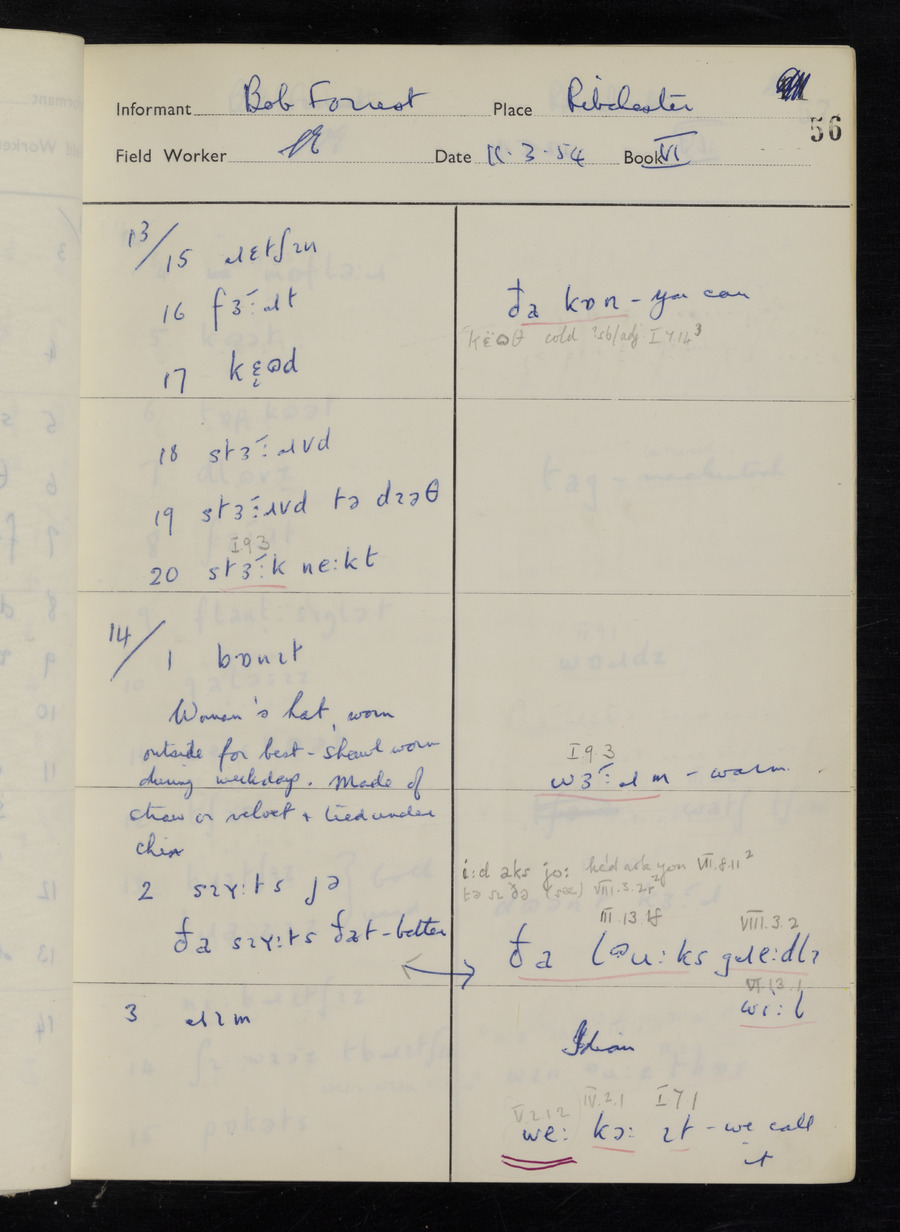 Informant Bob Forrest Place Ribchester
56
Field Worker Date 11.3.54 Book VI
13/15 ɹɛtʃɪn
16 fɜ˞:ɹt
17 kɛɷd
18 stɜ˞:ɹvd
19 stɜ˞:ɹvd tə dɪəθ
I 9 3
20 stɜ˞:k ne:kt
14/1 bɒnɪt
Woman's hat, worn
outside for best - shawl worn
during weekday. Made of
straw or velvet + tied under
chin
2 sɪʏ:ts jə
ða sɪʏ:ts ðat - better
3 ɹɪm
ða kɒn - you can
kɛɷθ cold sb/adj I 7.14³
I.9.3
wɜ˞:ɹm - warm
i:d aks jo: he'd ask you VII.8.11²
tə sɪ ðə (see) VIII.3.2
III.13.18 VIII.3.2
ða lɷu:ks gɹe:dlɪ
VI.13.1
wi:l
V.2.12 IV.2.1 I 7 1
we: kɔ: ɪt - we call
it